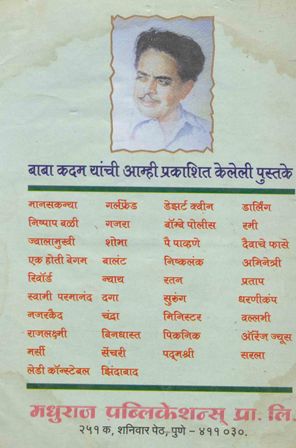 बाबा कदम यांची आम्ही प्रकाशित केलेली पुस्तके
मानसकन्या गर्लफ्रेंड डेझर्ट क्वीन डार्लिंग
निष्पाप बळी गजरा बॉम्बे पोलीस रमी
ज्वालामुखी शोभा पै पाव्हणे दैवाचे फासे
एक होती बेगम बालंट निष्कलंक अभिनेत्री
रिवॉर्ड न्याय रतन प्रताप
स्वामी परमानंद दगा सुरुंग धरणीकंप
नजरकैद चंद्रा मिनिस्टर वल्लभी
राजलक्ष्मी बिनधास्त पिकनिक ऑरेंज ज्यूस
मर्सी सेंचरी पद्मश्री सरला
लेडी कॉन्स्टेबल झिंदाबाद
मधुराज पब्लिकेशन्स् प्रा. लि.
२५१ क, शनिवार पेठ, पुणे - ४११ ०३०.